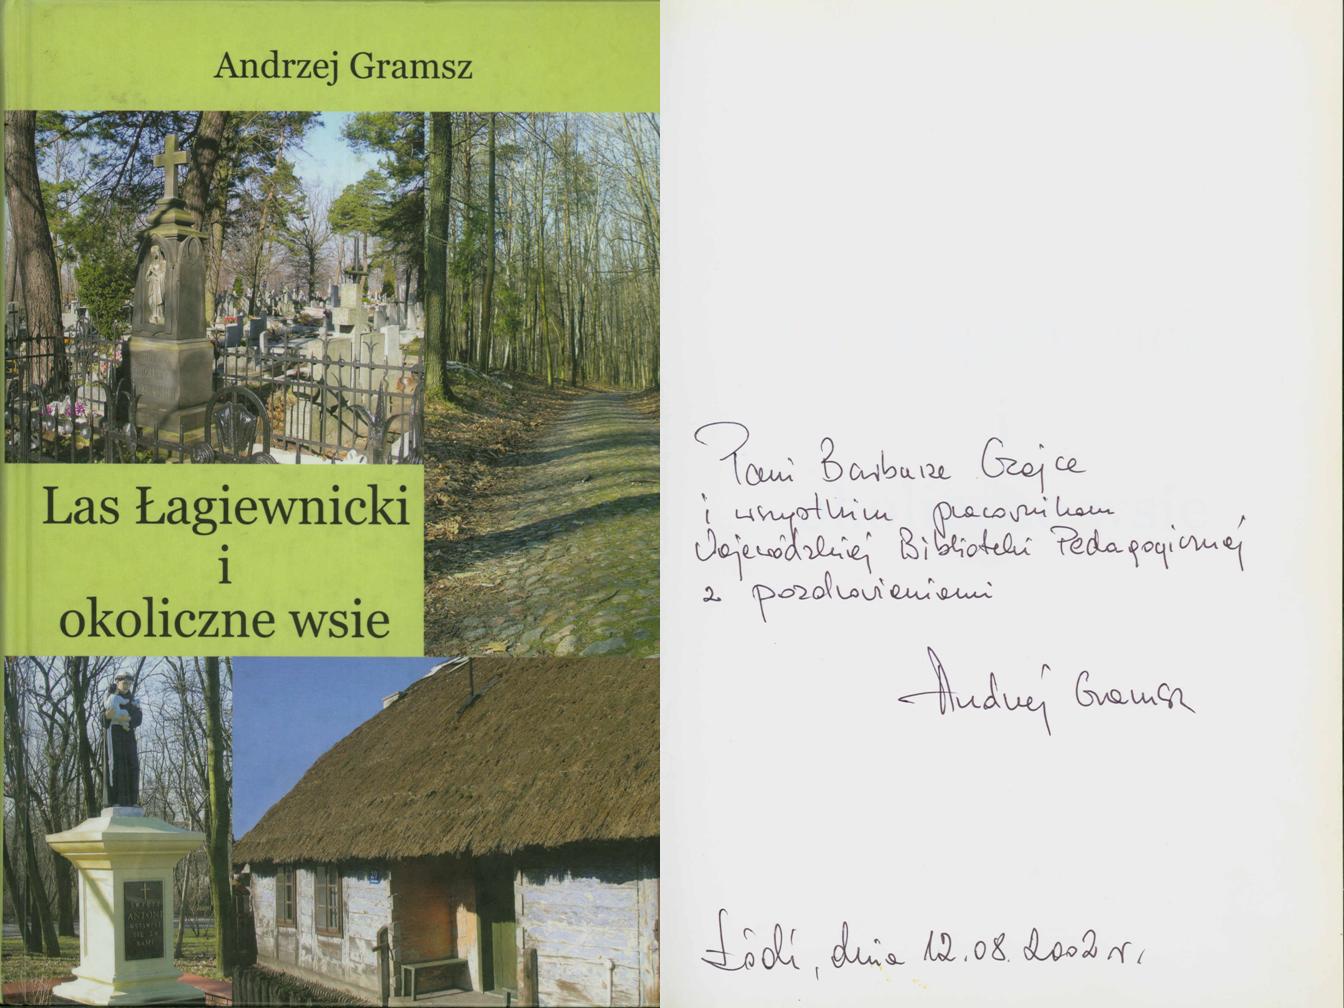 Andrzej Gramsz
Las Łagiewnicki
i
okoliczne wsie
ŚWIĘTY
ANTONI
WSTAWIAJ
SIĘ ZA
NAMI
Pani Barbarze Grajce
i wszystkim pracownikom
Wojewódzkiej Biblioteki Pedagogicznej
z pozdrowieniami
Andrzej Gramsz
Łódź, dnia 12.08.2002 r.